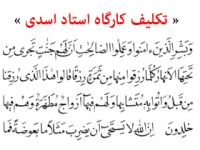 « تکلیف کارگاه استاد اسدی »
وَبَشِّرِ الَّذِينَ ءَامَنُوا وَعَمِلُوا الصَّالِحَاتِ أَنَّ لَهُمْ جَنَّاتٍ تَجْرِي مِن
تَحْتِهَا الْأَنْهَارُ كُلَّمَا رُزِقُوا مِنْهَا مِن ثَمَرَةٍ رِّزْقًا قَالُوا هَٰذَا الَّذِي رُزِقْنَا
مِن قَبْلُ وَأُتُوا بِهِ مُتَشَابِهًا وَلَهُمْ فِيهَا أَزْوَاجٌ مُّطَهَّرَةٌ وَهُمْ فِيهَا
خَالِدُونَ إِنَّ اللَّهَ لَا يَسْتَحْيِي أَن يَضْرِبَ مَثَلًا مَّا بَعُوضَةً فَمَا